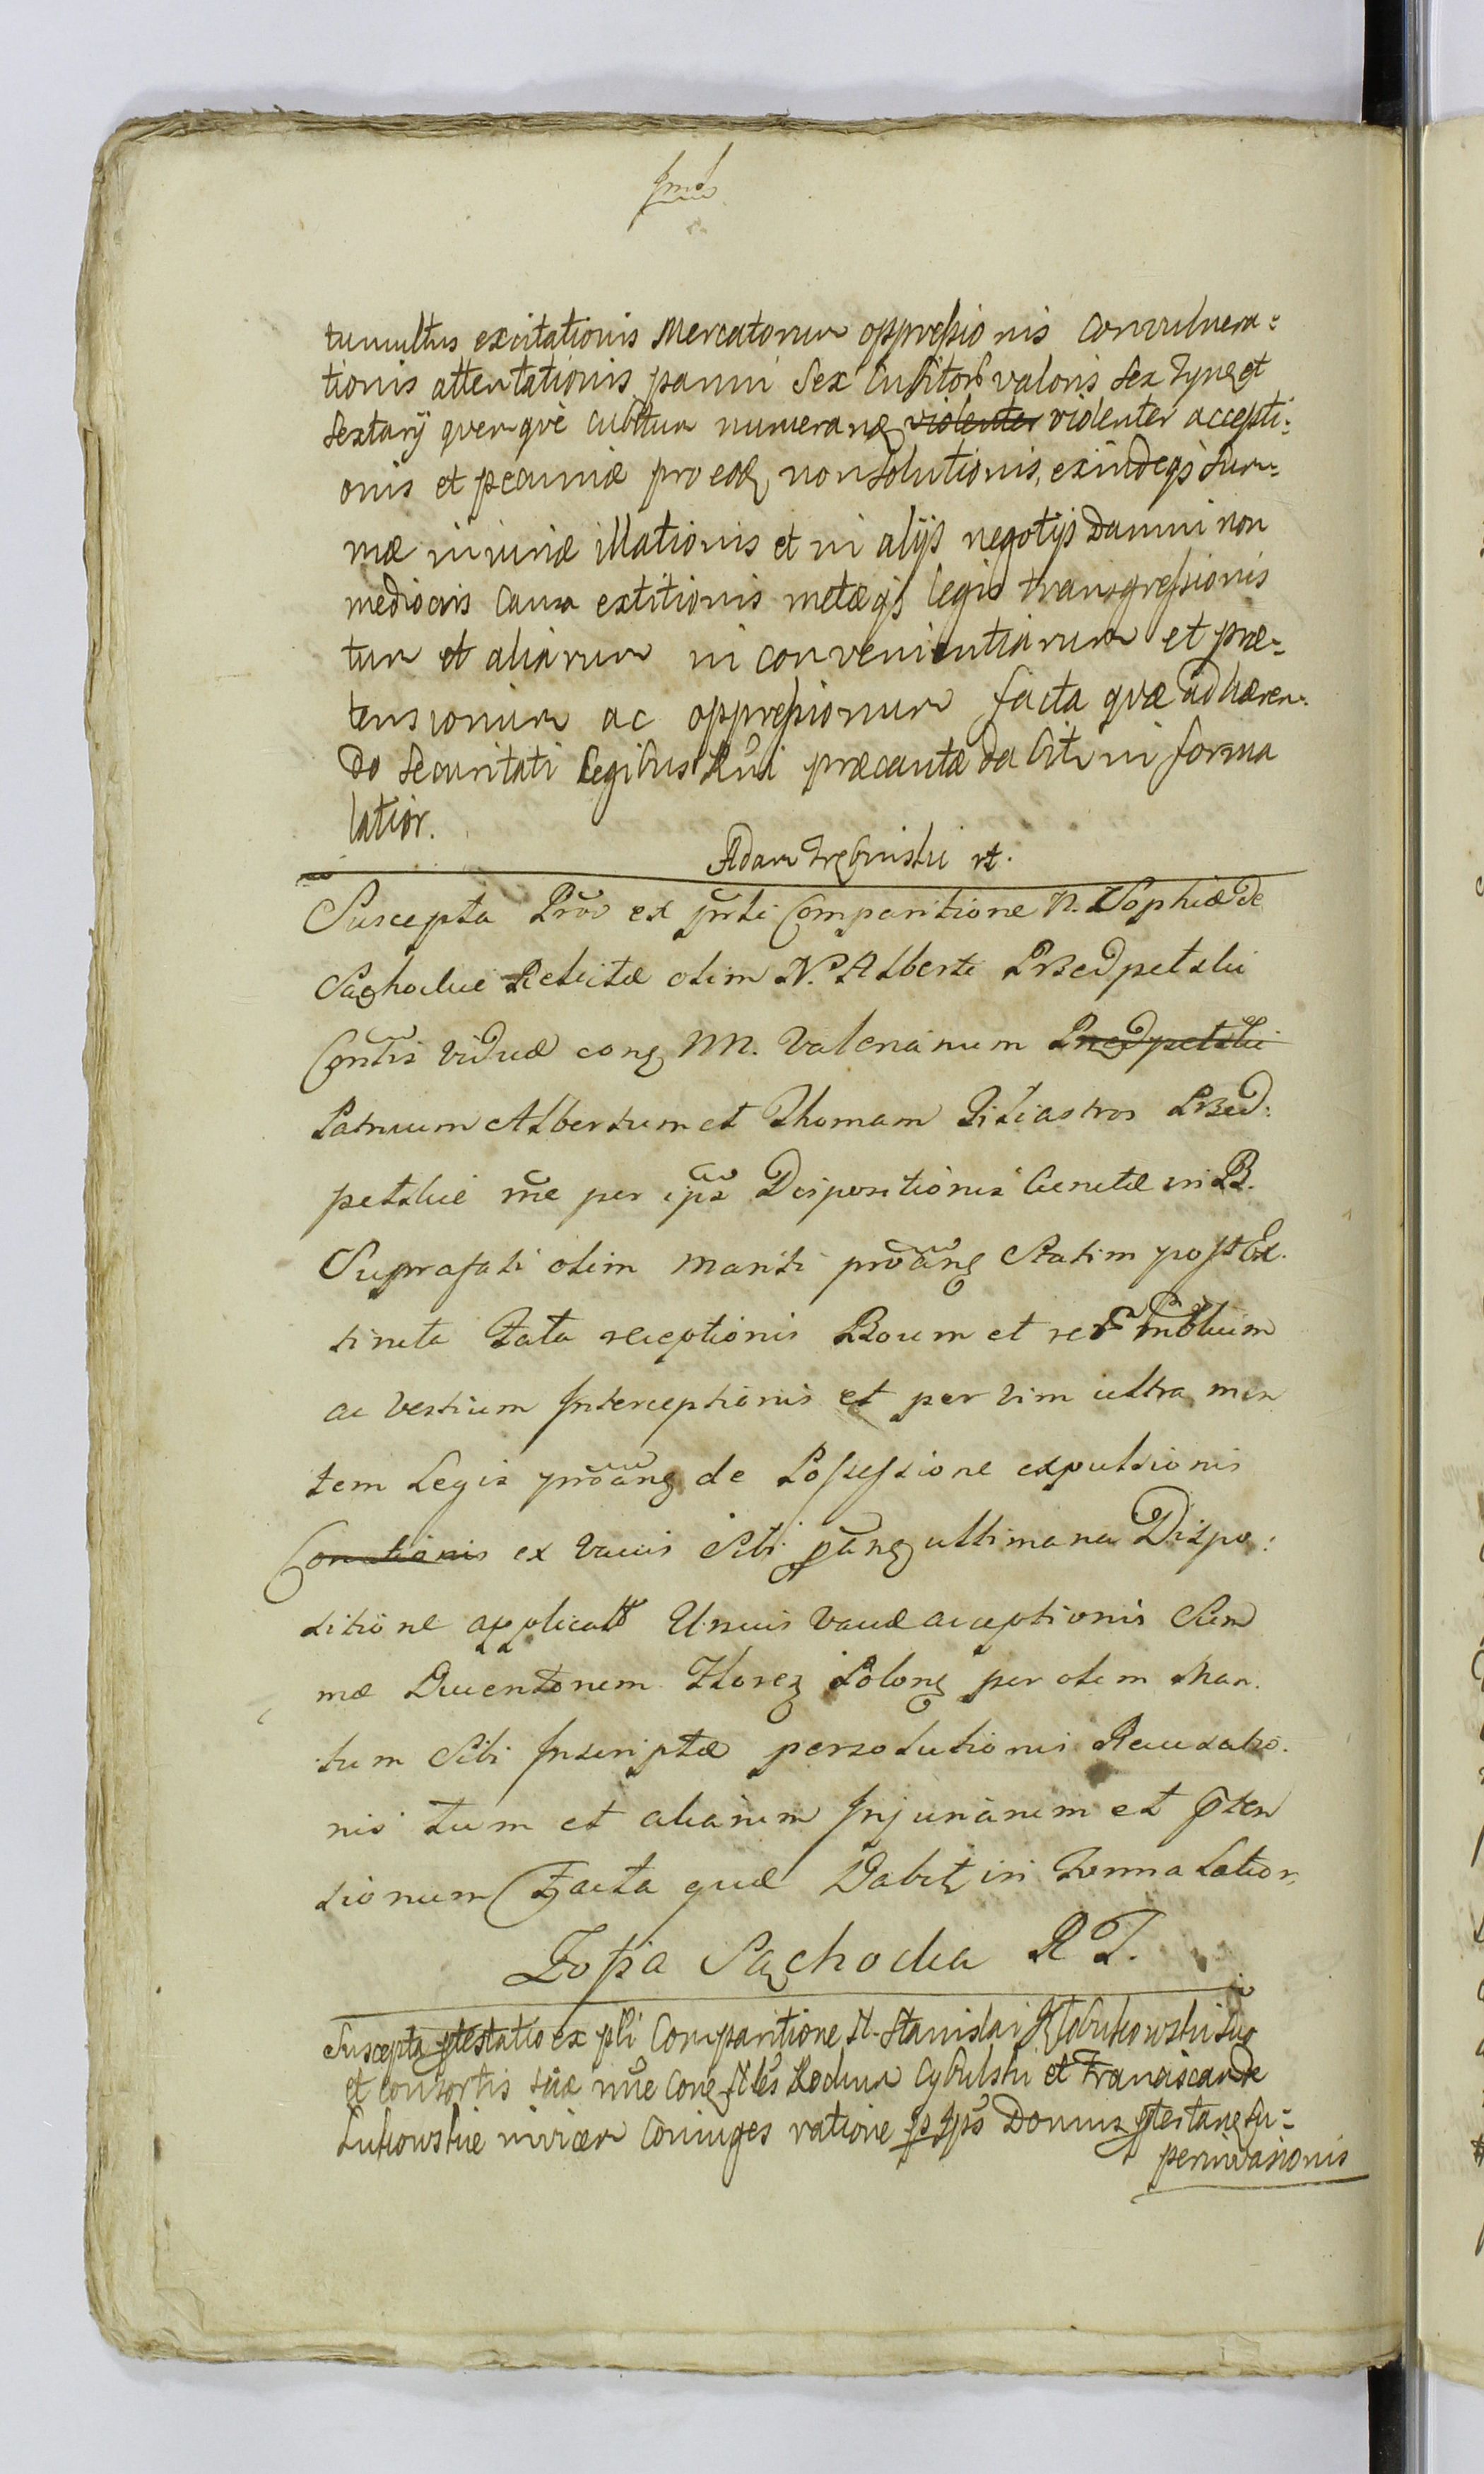 tumultus excitationis Mercatorum oppressionis convulnera=
tionis attentationis panni sex Cubitor̃ valoris sex Tynf et
Sextarÿ quemque cubitum numerando violenter violenter accepti=
onis et pecuniæ pro eode non solutionis, exindeqs Sum=
mæ iniuriæ illationis et in alÿs negotÿs Damni non
mediocris Causa extitionis metæqs legis transgressionis
tum et aliarum inconvenientiarum et præ=
tensionum ac oppressionum facta quæ adhæren=
do Securitati Legibus Rni præcautæ dabitr in forma
latior.
Adam Trębinski rt.
Suscepta Prõo ex prñti Comparitione N. Sophiæ de
Sąchockie Relictæ olim N. Alberti Przedpełski
Conntis viduæ con NN. Valerianum Przedpełski
Patruum Albertum et Thomam Filiastros Przed:
pełskie rñe per ipõs Dispositionis Cienetæ in B.
Suprafati olim Mariti prõãn Statim post Ex=
tincta Fata receptionis Boum et rerũ mõblium
ac Vestium Interceptionis et per vim ultra men
tem Legis prõãn de Possessione expulsionis
Conationis ex Vacuis Sibi põãn ultimaria Dispo:
sitione applicatt Unius Vaccæ acceptionis Sum
mæ Ducentorum Floren Polon per olim Mari
tum Sibi Inscriptæ persolutionis Recusatio=
nis tum et aliarum Injuriarum et pten
sionum Facta quæ Dabit in Forma Latior
Zofia Sąchocka R T.
Suscepta ptestatio ex pñti Comparitione N. Stanislai Kłobukowski suo
et consortis suæ nõe Con Nbles Rochum Cybulski et Franciscam de
Łukowskie invicem Coniuges ratione p ipõs Domus ptestan su=
perinvasionis